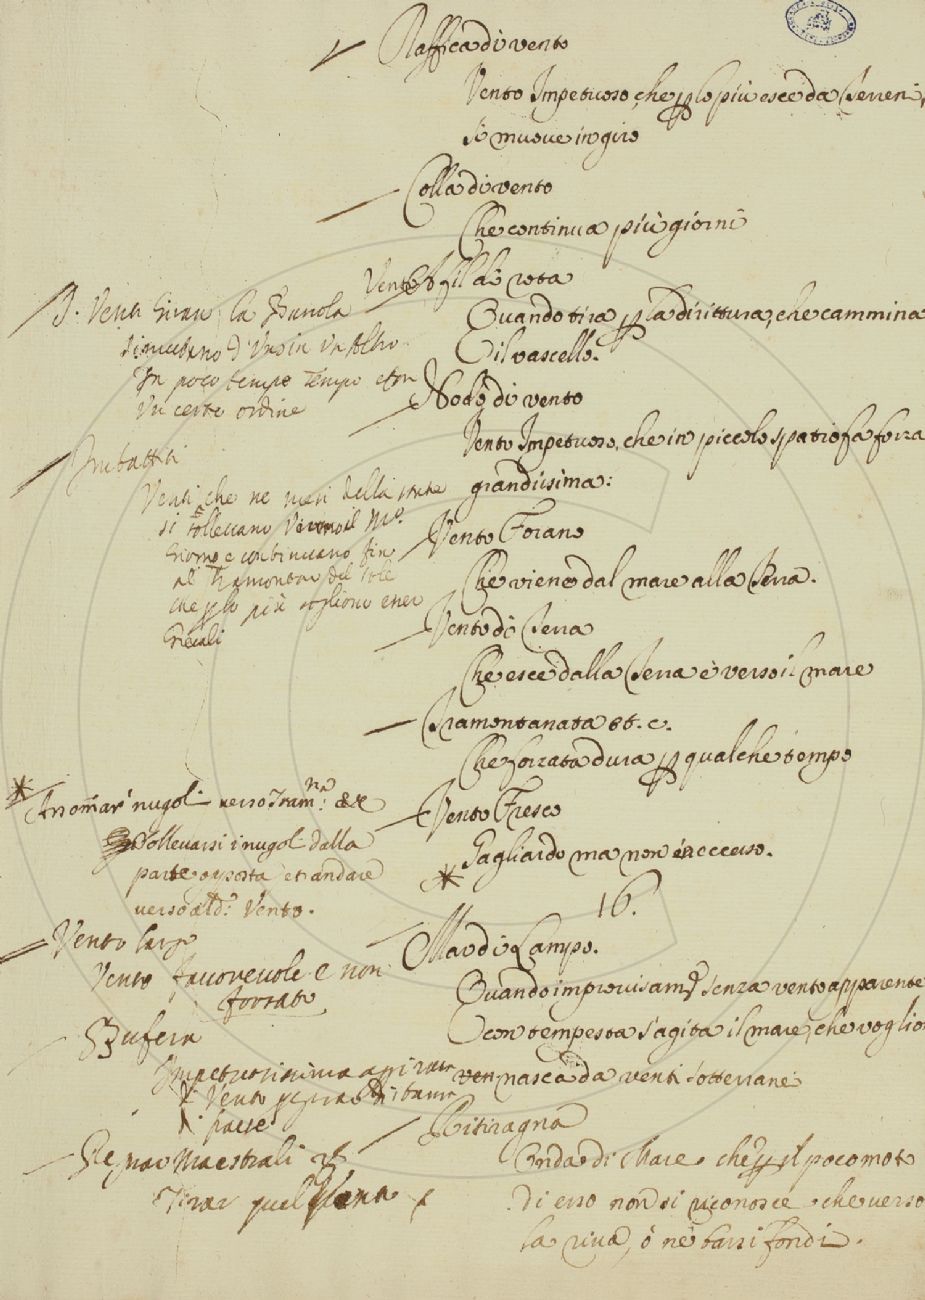 Raffica di vento
Vento Impetuoso, che p lo più esce da Terreni,
si muove in giro
Colla di vento
Che continua più giorni
Vento a fil di rota
Quando tira p la dirittura, che cammina
il vascello.
Nodo di vento
Vento Impetuoso, che in piccolo spatio fa forza
grandissima:
Vento Forano
Che viene dal mare alla Terra.
Vento di Terra
Che esce dalla Terra è verso il mare
Tramontanata et. c.
Che forzata dura p qualche tempo
Vento Fresco
Gagliardo ma non in eccesso.
16.
Mar di Lampo.
Quando improvisamte senza vento apparente
con tempesta s'agita il mare, che voglion
nasca da venti sotterranei
Ritiragna
Onda di Mare, che p il poco moto
di esso non si riconosce, che verso
la riva, ò ne bassi fondi.
I Venti Giran la
d'Uno in Un Altro
In poco tempo
Un certo ordine
Imbatti
Venti, che ne mesi della state
si sollevano Verso il Mo.
Giorno e continuano fin
al Tramontar del sole
che p lo più sogliono esser
Grecali
nugoli verso Tram.na &c
sollevarsi i nugoli dalla
parte opposta et andare
verso il d.o Vento.
Vento largo
Vento favorevole e non
forzato
Bufera
Impetuosissima
Vento
paese
Regnar Maestrali
Tirar quel Vento